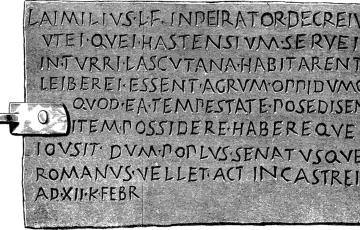 L·AIMILIVS·L·F·INPEIRATOR·DECREIV
VTEI·QVEI·HASTENSIVM·SERVEI
IN·TVRRI·LASCVTANA·HABITARENT
LEIBEREI·ESSENT·AGRVM·OPPIDVMQ
QVOD·EA·TEMPESTATE·POSEDISEN
ITEM·POSSIDERE·HABEREQVE
IOVSIT·DVM·POPLVS·SENATVSQVE
ROMANVS·VELLET·ACT·IN·CASTREIS
A·D·XII·K·FEBR